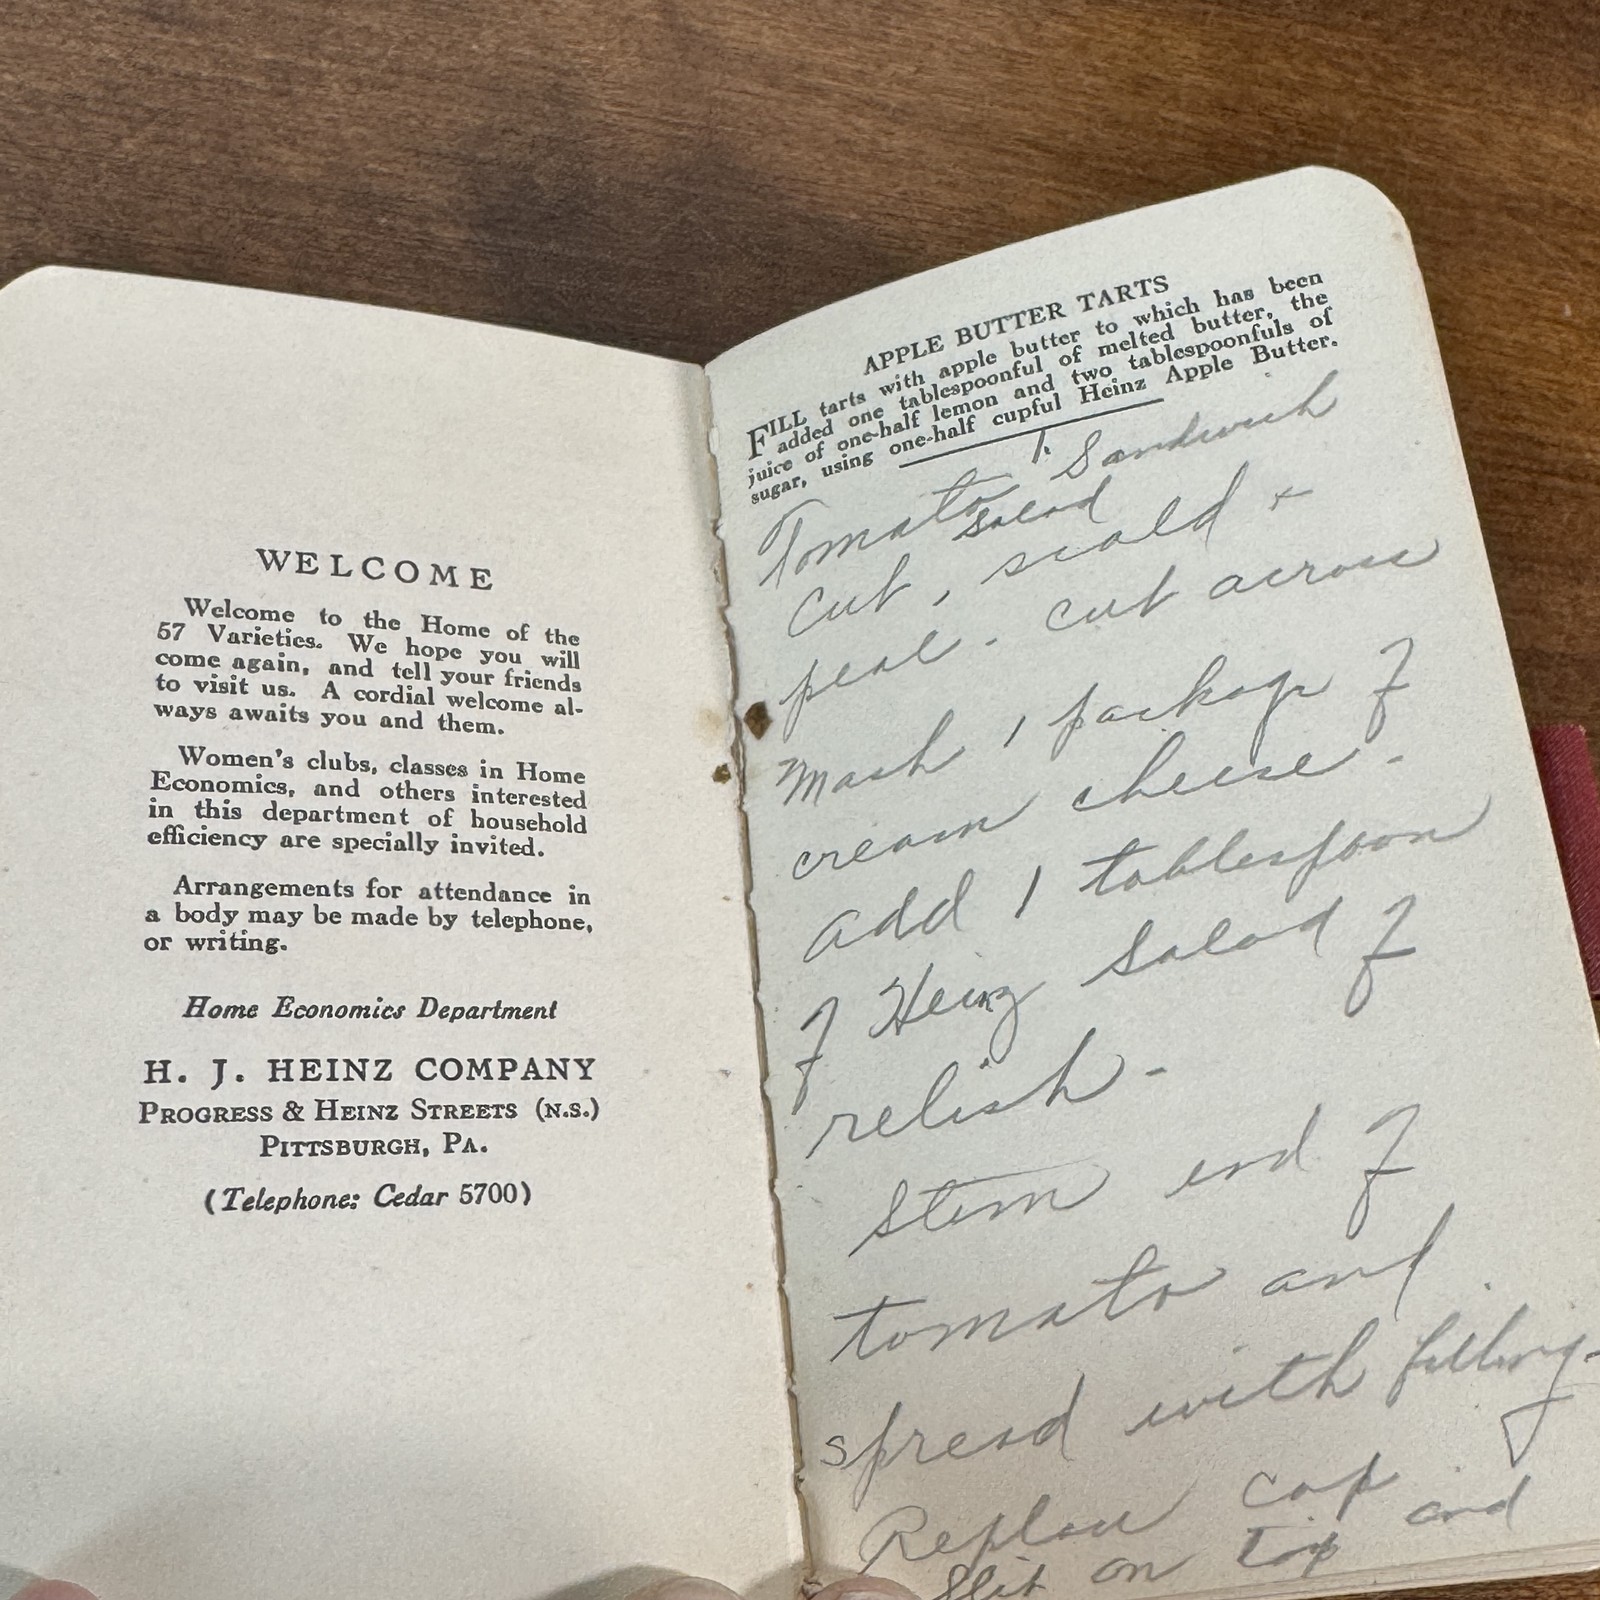 WELCOME
Welcome to the Home of the
57 Varieties. We hope you will
come again, and tell your friends
to visit us. A cordial welcome al-
ways awaits you and them.
Women's clubs, classes in Home
Economics, and others interested
in this department of household
efficiency are specially invited.
Arrangements for attendance in
a body may be made by telephone,
or writing.
Home Economics Department
H. J. HEINZ COMPANY
PROGRESS & HEINZ STREETS (N.S.)
PITTSBURGH, PA.
(Telephone: Cedar 5700)
APPLE BUTTER TARTS
FILL tarts with apple butter to which has been
added one tablespoonful of melted butter, the
juice of one-half lemon and two tablespoonfuls of
sugar, using one-half cupful Heinz Apple Butter.
Tomato Sandwich
Salad
Cut, scald +
peal. cut across
Mash 1 package of
cream cheese -
add 1 tablespoon
of Heinz Salad of
relish -
Stem end of
tomato and
spread with filling -
Replace cap
Slit on top and